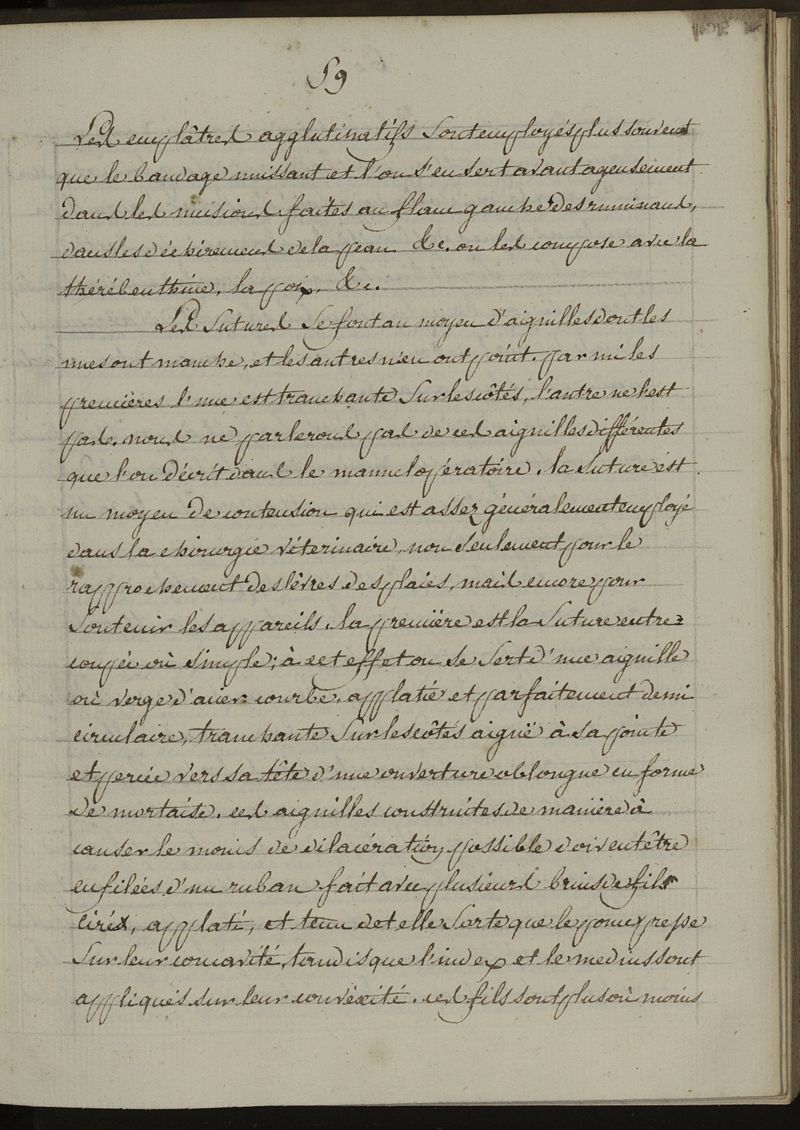 59
Les emplâtres agglutinatifs sont employés plus souvent
que le bandage unissant et l'on s'en sert avantageusement
dans les incisions faites au flanc gauche des ruminans,
dans les déchiremens de la peau &c. on les compose avec la
thérébenthine, la poix, &c.
Les sutures se font au moyen d'aiguilles dont les
unes ont manche, et les autres n'en ont point. parmi les
premières l'une est tranchante sur les côtés, l'autre ne l'est
pas. nous ne parlerons pas de ces aiguilles différentes
que l'on décrit dans le manuel opératoire. la suture est
un moyen de contension qui est assez généralement employé
dans la chirurgie véterinaire, non seulement pour le
rapprochement des lèvres des plaies, mais encore pour
soutenir les appareils. la première est la suture entre=
coupée où simple; à cet effet on se sert d'une aiguille
où verge d'acier courbe, applatie et parfaitement demi
circulaire, tranchante sur les côtés aiguë à sa pointe
et percée vers sa tête d'une ouverture oblongue en forme
de mortaise. ces aiguilles construites de manière à
causer le moins de dilacération possible doivent être
enfilées d'un ruban fait avec plusieurs brins de fils
cirés, applati, et tenu de telle sorte que le pouce presse
sur leur concavité, tandis que l'index et le medius sont
appliqués sur leur convéxité. ces fils sont plus où moins